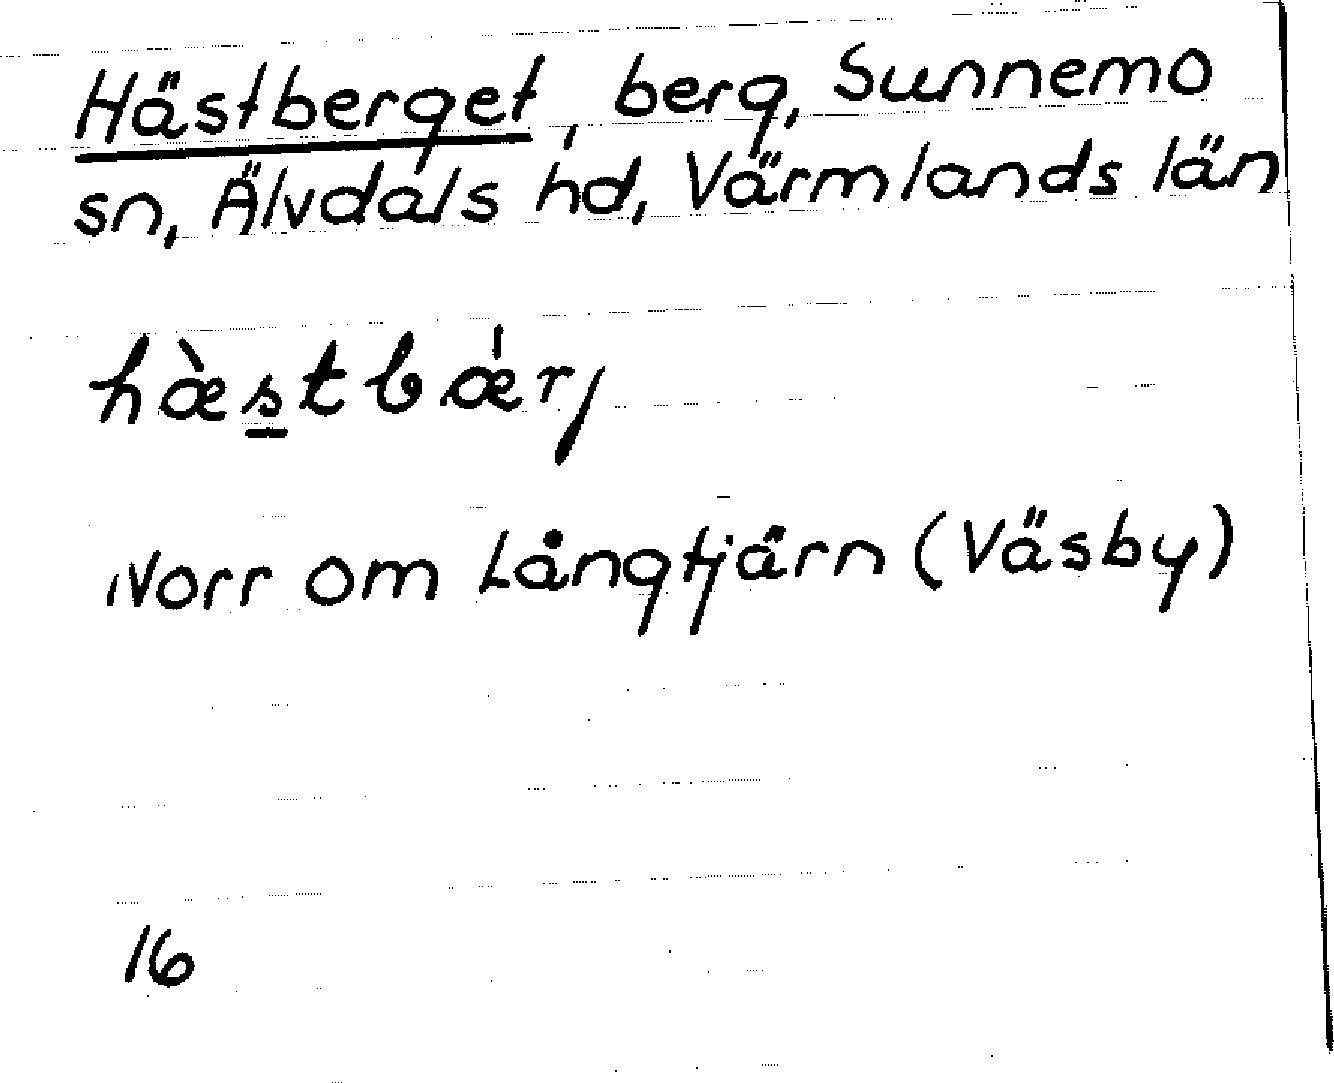 Hästberget, berg, Sunnemo
sn, Älvdals hd, Värmlands län
hæ̀s̲tbæ̍rj
Norr om Långtjärn (Väsby)
16